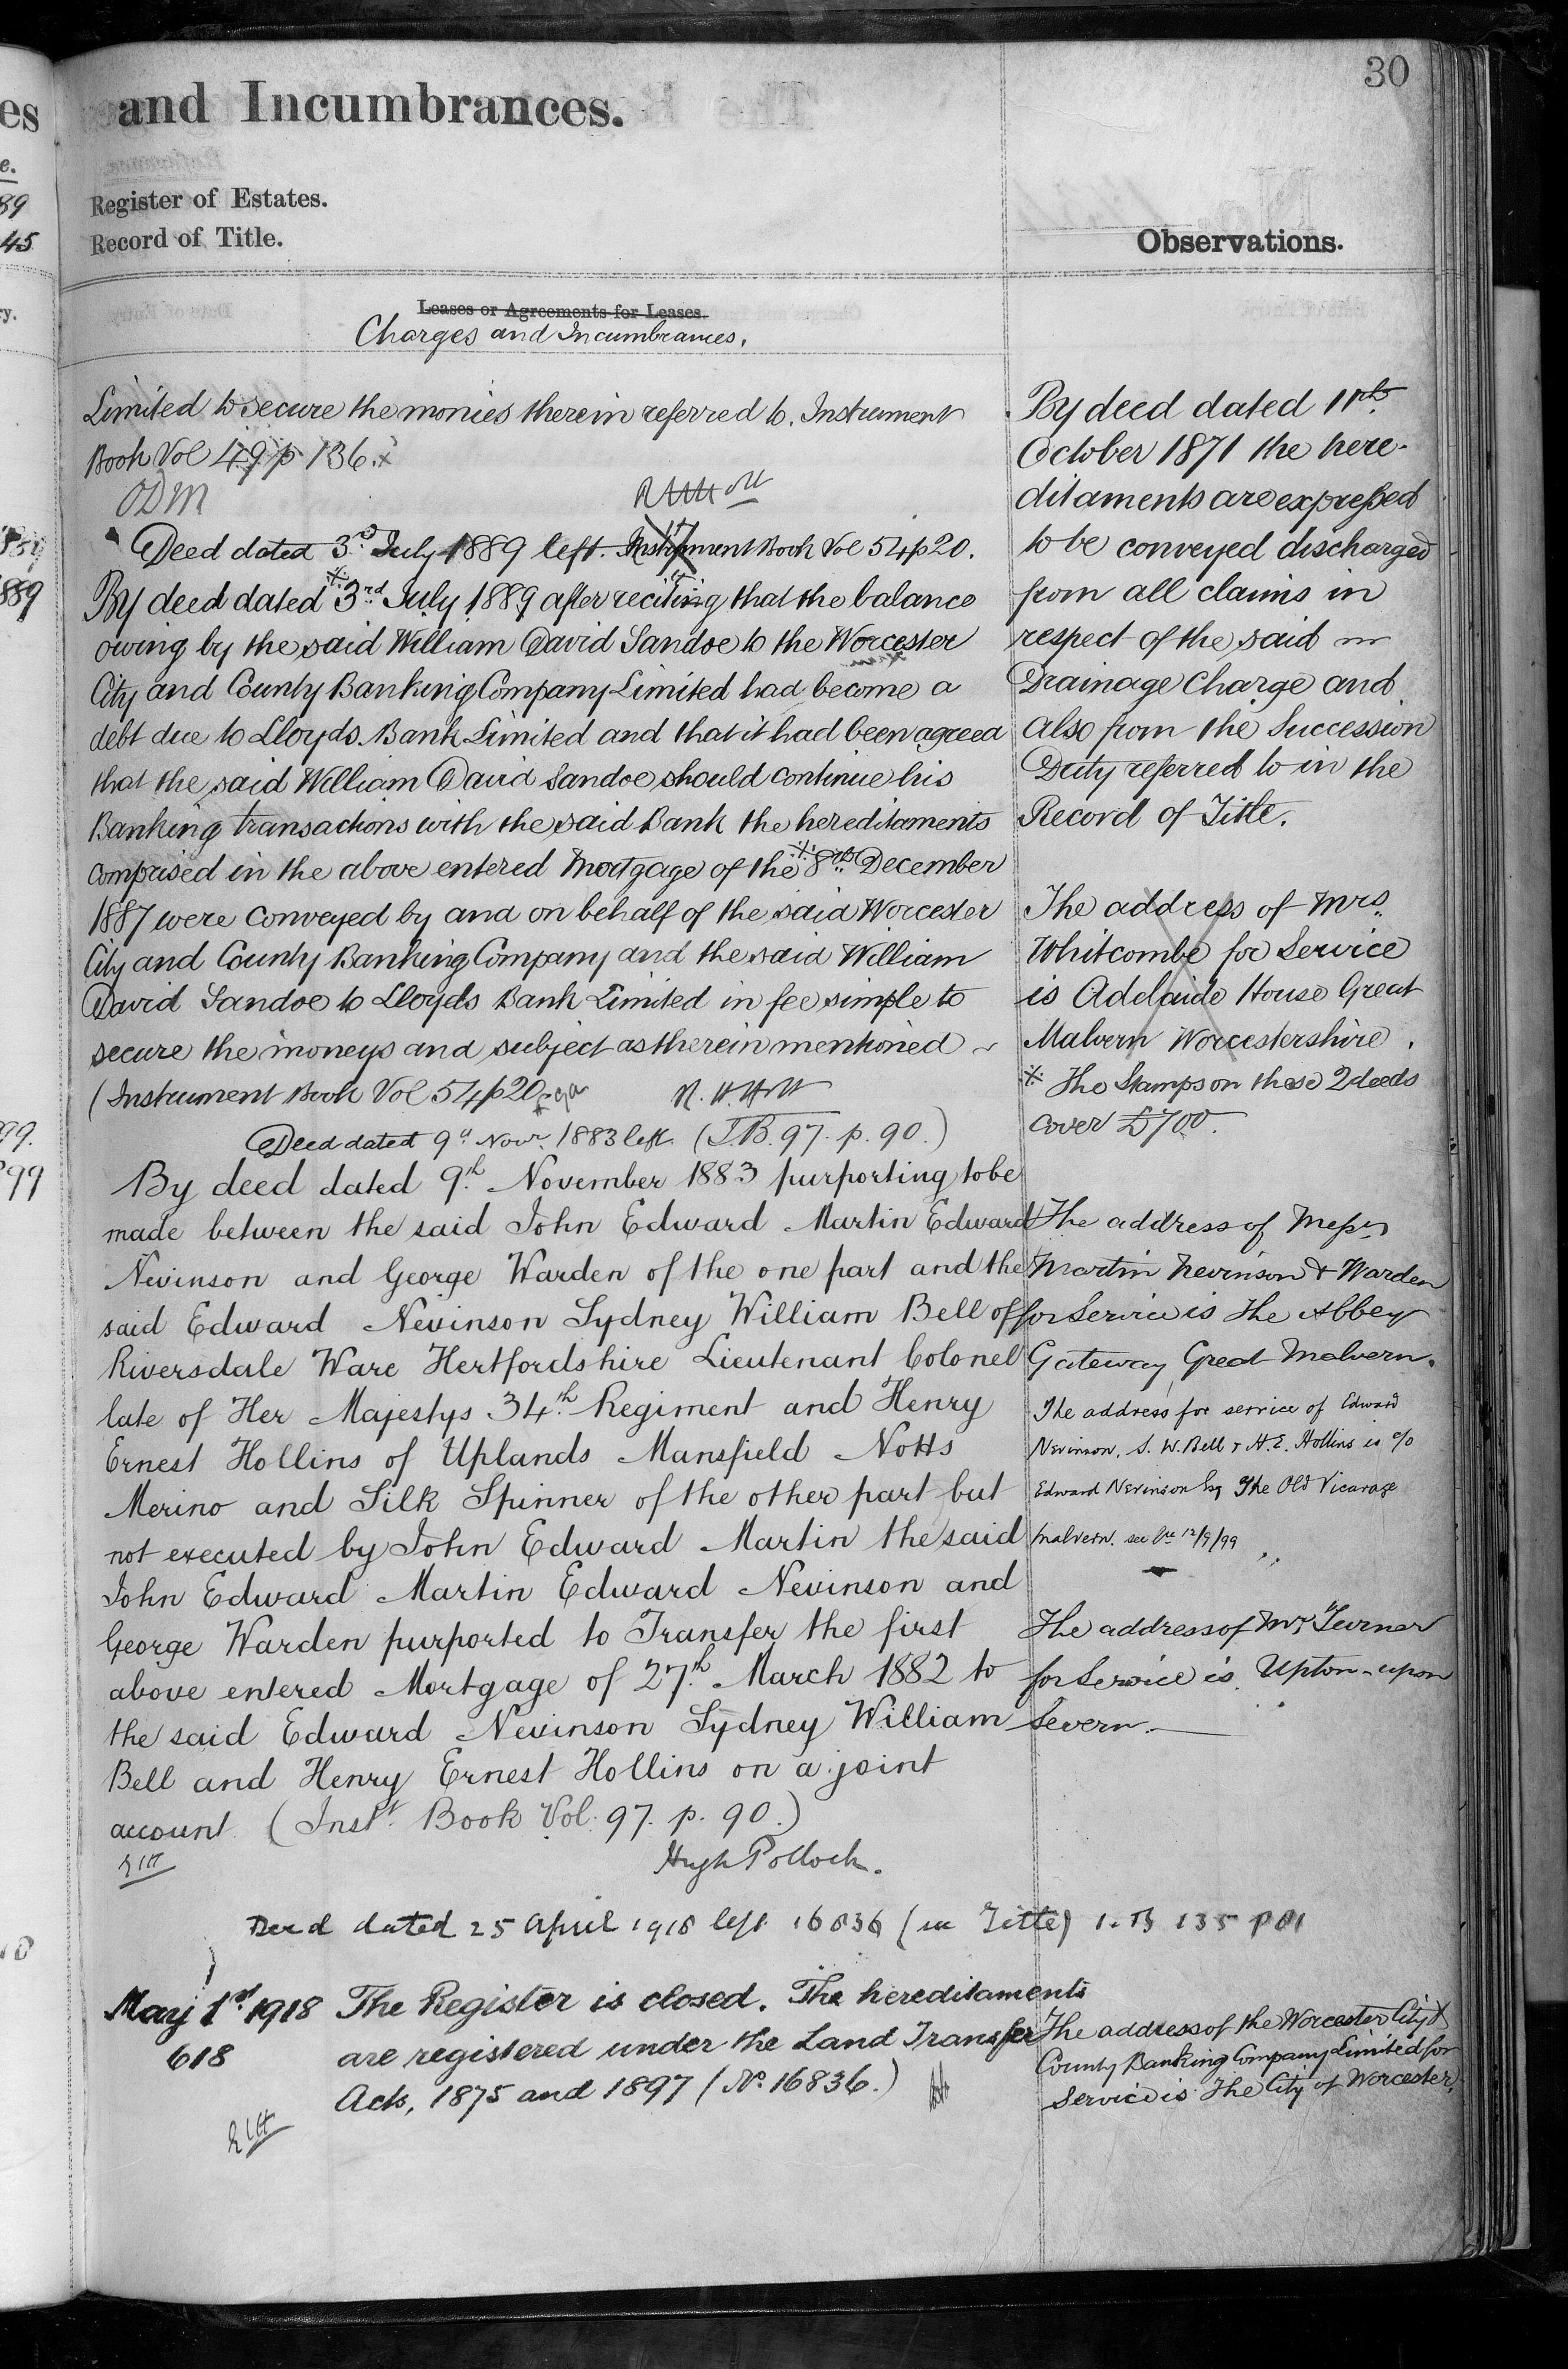 30
and Incumbrances.
Register of Estates.
Record of Title.
Observations.
Leases or Agreements for Leases.
Charges and Incumbrances.
Limited to secure the monies therein referred to. Instrument
Book Vol 49 p 136.
ODM
Deed dated 3rd July 1889 left. Instrument Book Vol 54 p 20.
By deed dated 3rd July 1889 after reciting that the balance
owing by the said William David Sandoe to the Worcester
City and County Banking Company Limited had become a
debt due to Lloyds Bank Limited and that it had been agreed
that the said William David Sandoe should continue his
Banking transactions with the said Bank the hereditaments
comprised in the above entered Mortgage of the 8th December
1887 were conveyed by and on behalf of the said Worcester
City and County Banking Company and the said William
David Sandoe to Lloyds Bank Limited in fee simple to
secure the moneys and subject as therein mentioned
(Instrument Book Vol 54 p 20
R. H. Holt
Deed dated 9th Novr. 1883 left. (I.B. 97. p. 90.)
By deed dated 9th November 1883 purporting to be
made between the said John Edward Martin Edward
Nevinson and George Warden of the one part and the
said Edward Nevinson Sydney William Bell of
Riversdale Ware Hertfordshire Lieutenant Colonel
late of Her Majestys 34th Regiment and Henry
Ernest Hollins of Uplands Mansfield Notts
Merino and Silk Spinner of the other part but
not executed by John Edward Martin the said
John Edward Martin Edward Nevinson and
George Warden purported to Transfer the first
above entered Mortgage of 27th March 1882 to
the said Edward Nevinson Sydney William
Bell and Henry Ernest Hollins on a joint
account. (Inst. Book Vol. 97. p. 90.)
Hugh Pollock.
Deed dated 25 April 1918 left 16836 (in Title) I.B 135 p 81
May 1st 1918 The Register is closed. The hereditaments
618 are registered under the Land Transfer
Acts, 1875 and 1897 (No. 16836.)
By deed dated 11th
October 1871 the here-
ditaments are expressed
to be conveyed discharged
from all claims in
respect of the said
Drainage Charge and
also from the Succession
Duty referred to in the
Record of Title.
The address of Mrs.
Whitcombe for Service
is Adelaide House Great
Malvern Worcestershire.
The Stamps on these 2 deeds
cover £700.
The address of Messrs
Martin Nevinson & Warden
for Service is The Abbey
Gateway Great Malvern.
The address for service of Edward
Nevinson, S. W. Bell & H. E. Hollins is c/o
Edward Nevinson Esq The Old Vicarage
Malvern. see 12/9/99
The address of Mr. Turner
for Service is Upton-upon
Severn.
The address of the Worcester City &
County Banking Company Limited for
Service is The City of Worcester.